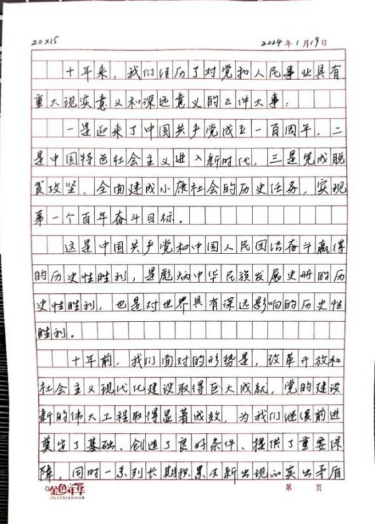 20×15 2024年1月19日
十年来，我们经历了对党和人民事业具有
重大现实意义和深远意义的三件大事：
一是迎来了中国共产党成立一百周年，二
是中国特色社会主义进入新时代，三是完成脱
贫攻坚、全面建成小康社会的历史任务，实现
第一个百年奋斗目标。
这是中国共产党和中国人民团结奋斗赢得
的历史性胜利，是彪炳中华民族发展史册的历
史性胜利，也是对世界具有深远影响的历史性
胜利。
十年前，我们面对的形势是，改革开放和
社会主义现代化建设取得巨大成就，党的建设
新的伟大工程取得显著成效，为我们继续前进
奠定了基础、创造了良好条件、提供了重要保
障，同时一系列长期积累及新出现的突出矛盾
金色年华 第 页